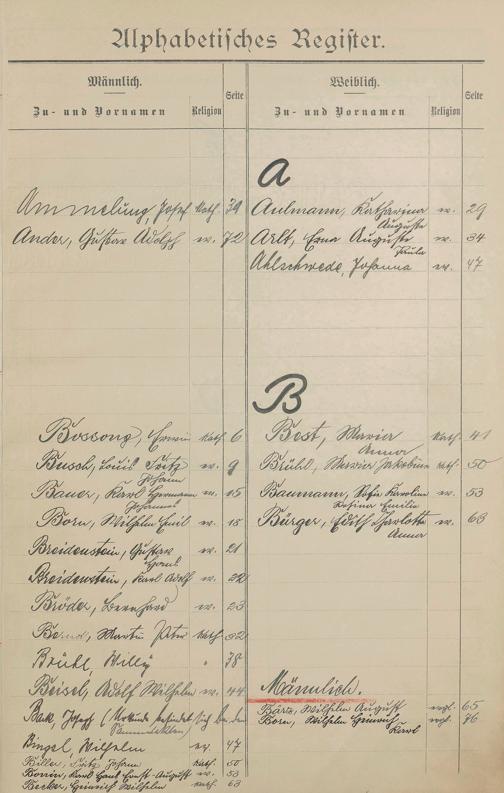 Alphabetisches Register.
Männlich.
Zu- und Vornamen Religion Seite
Ammelung, Josef kath. 79
Ander, Gustav Adolf ev. 72
Bossong, Erwin kath. 6
Busch, Louis Fritz ev. 9
Johann
Bauer, Karl Hermann ev. 15
Johannes
Born, Wilhelm Emil ev. 18
Breidenstein, Gustav ev. 21
Breidenstein, Karl Adolf ev. 22
Bröder, Bernhard ev. 23
Martin Peter kath. 32
Brühl, Willy " 38
Beisel, Adolf Wilhelm ev. 44
Back, Josef (Urkunde befindet sich bei den
Sammelakten)
Bingel, Wilhelm ev. 47
Biller, Fritz Johann kath. 50
Bonin, Karl Ernst-August ev. 53
Becker, Heinrich Wilhelm kath. 63
Weiblich.
Zu- und Vornamen Religion Seite
A
Aulmann, Katharina ev. 29
Auguste
Arlt, Erna Auguste ev. 34
Paula
Ahlschwede, Johanna ev. 47
B
Best, Maria kath. 41
Anna
Brühl, Maria Jakobine kath. 50
Baumann, Sofie Karoline ev. 53
Rosina Emilie
Bürger, Edith Charlotte ev. 63
Anna
Männlich.
Wilhelm August evgl. 65
Born, Wilhelm Heinrich- evgl. 76
Karl